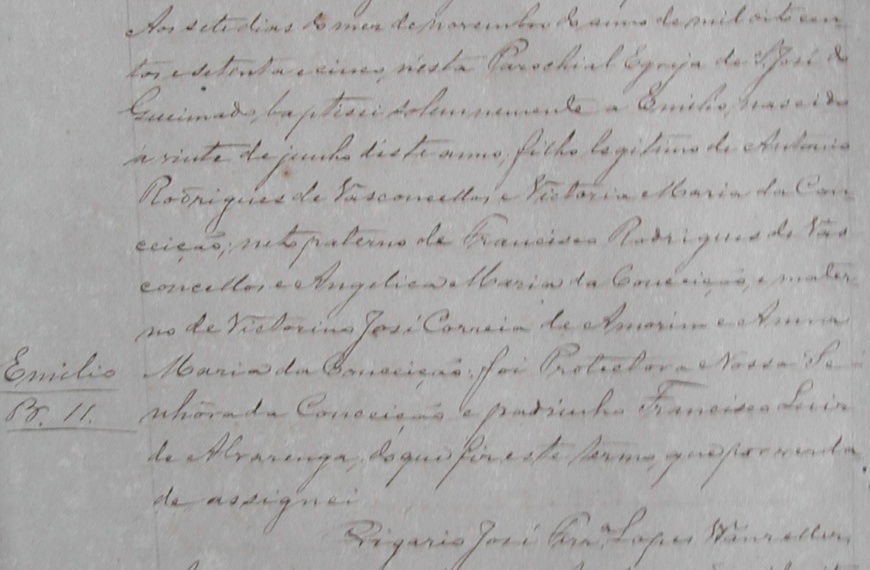 Aos sete dias do mez de novembro do anno de mil oito cen-
tos e setenta e cinco, nesta Parochial Egreja de S. José do
Queimado, baptisei solemnemente a Emilio, nascido
a vinte de junho deste anno, filho legitimo de Antonio
Rodrigues de Vasconcellos e Victoria Maria da Con-
ceição; neto paterno de Francisco Rodrigues de Vas-
concellos e Angelica Maria da Conceição, e mater-
no de Victorino José Correia de Amorim e Anna
Emilio
Maria da Conceição: foi Protectora Nossa Se-
Br. 11.
nhora da Conceição e padrinho Francisco Luiz
de Alvarenga, do que fiz este termo, que por verda-
de assignei
Vigario José Ferr.ª Lopes